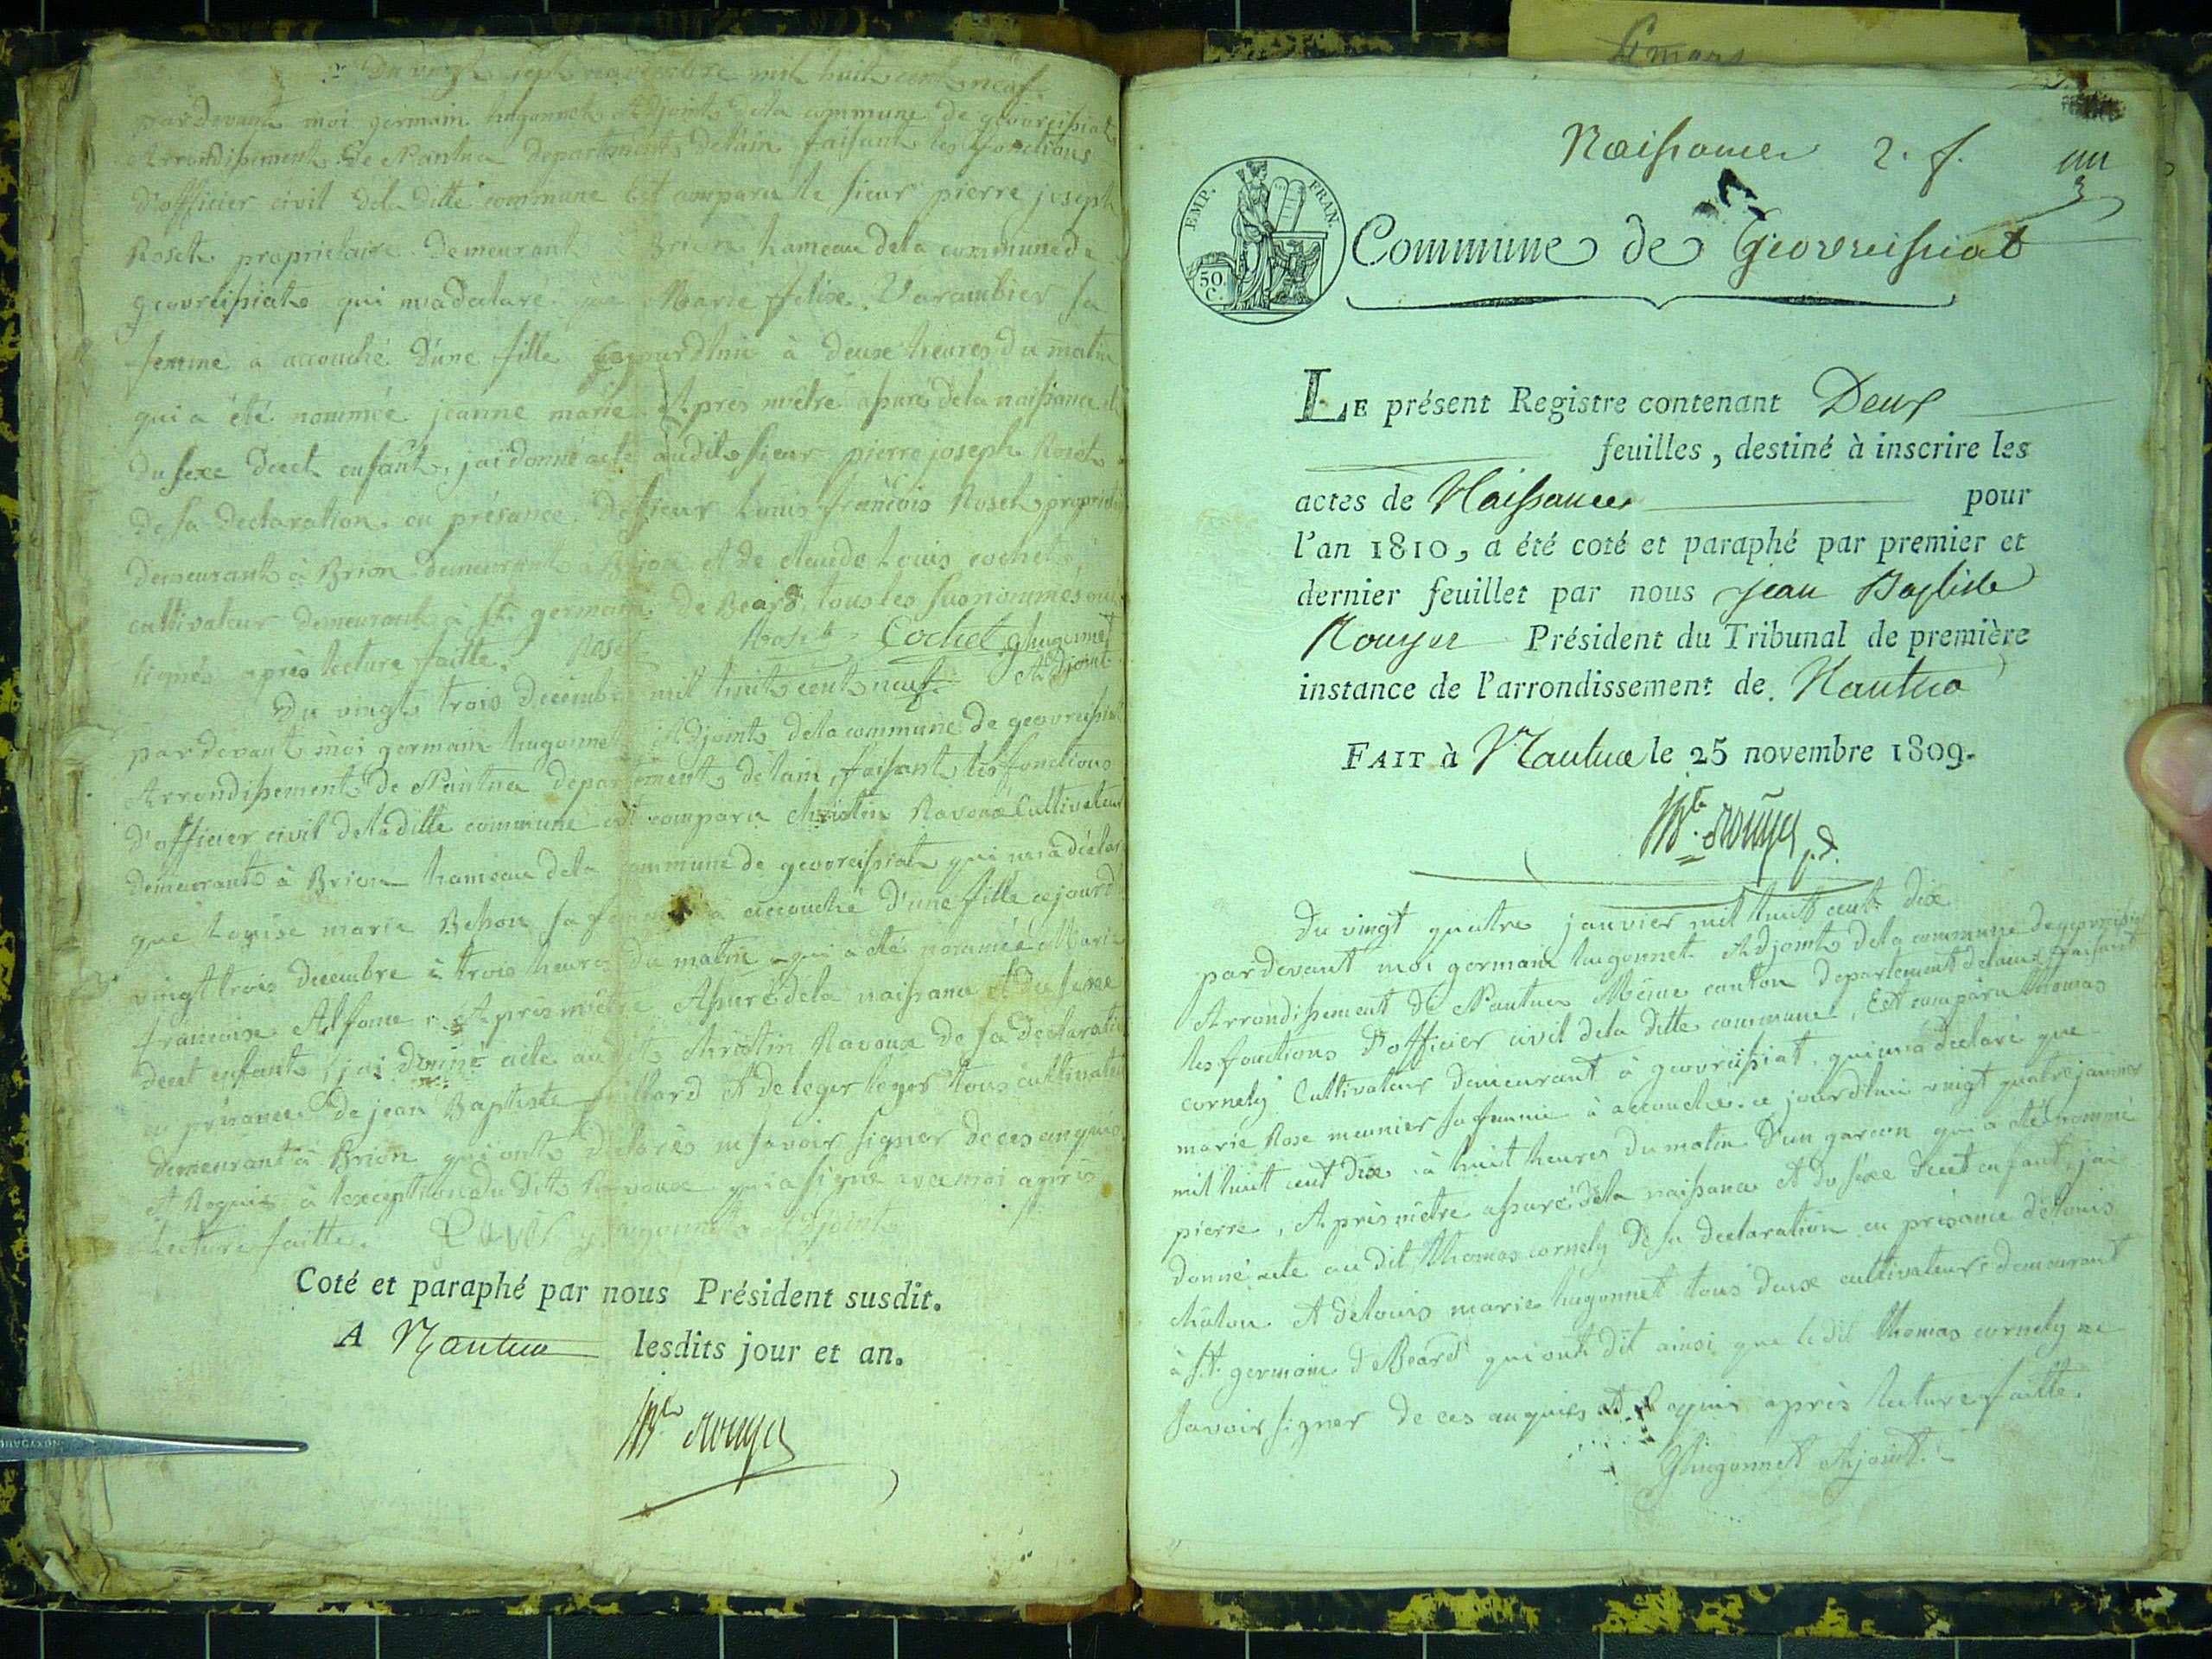 Du vingt sept novembre mil huit cent neuf.
pardevant moi germain hugonnet Adjoint dela commune de geovreissiat
Arrondissement de Nantua departement delain faisant les fonctions
d'officier civil dela ditte commune Est comparu le sieur pierre joseph
Roset proprietaire demeurant à Brion hameau dela commune de
geovreissiat qui m'a declare que Marie felixe Varambier sa
femme a accouché d'une fille aujourdhui à deux heures du matin
qui a été nommée jeanne marie Après mêtre assuré dela naissance et
du sexe duect enfant, jai donné acte audit sieur pierre joseph Roset
de sa declaration en présance de sieur Louis françois Roset proprietaire
demeurant à Brion demeurant à Brion et de claude Louis cochet
cultivateur demeurant à St. germain De Beard, tous les susnommés ont
signés après lecture faitte. Roset Roset Cochet ghugonnet
Adjoint
Du vingt trois Decembre mil huit cent neuf
pardevant moi germain hugonnet Adjoint dela commune de geovreissiat
Arrondissement de Nantua departement de lain, faisant les fonctions
d'officier civil deladitte commune est comparu christin Ravoux Cultivateur
demeurant à Brion hameau dela commune de geovreissiat qui m'a déclaré
que Louise marie Besson sa femme a accouché d'une fille cejourd
vingt trois decembre à trois heures du matin qui a été nommée Marie
francoise Alfonse Après mêtre Assuré dela naissance et du sexe
duect enfant, jai donné acte audit christin Ravoux de sa declaration
en présance de jean Baptiste et de leger leger tous cultivateurs
demeurant à Brion qui ont declarés ne savoir signer de ces enquis
et Requis à l'exception du dit Ravoux qui a signé avec moi après
lecture faitte. ghugonnet Adjoint
Coté et paraphé par nous Président susdit.
A Nantua lesdits jour et an.
JBte Rouyer
4 mars
Naissances 2. f. un
EMP. FRAN.
50 C.
Commune de Geovreissiat
LE présent Registre contenant Deux
feuilles, destiné à inscrire les
actes de Naissances pour
l'an 1810, a été coté et paraphé par premier et
dernier feuillet par nous jean Baptiste
Rouyer Président du Tribunal de première
instance de l'arrondissement de Nantua
FAIT à Nantua le 25 novembre 1809.
JBte Rouyer p.d.
Du vingt quatre janvier mil huit cent dix
pardevant moi germain hugonnet Adjoint dela commune degeovreissiat
Arrondissement de Nantua Même canton departement delain, faisant
les fonctions d'officier civil dela ditte commune, Est comparu thomas
cornely Cultivateur demeurant à geovreissiat, qui m'a declaré que
marie Rose meunier sa femme à accouchée cejourdhui vingt quatre janvier
mil huit cent dix à huit heures du matin d'un garcon qui a été nommé
pierre, Après mêtre assuré dela naissance et du sexe duect enfant jai
donné acte audit thomas cornely de sa declaration en présance de Louis
chaton et delouis marie hugonnet tous deux cultivateurs demeurant
à St. germain d Beard qui ont dit ainsi que ledit thomas cornely ne
savoir signer de ces enquies et Requis après lecture faitte.
ghugonnet Ajoint.